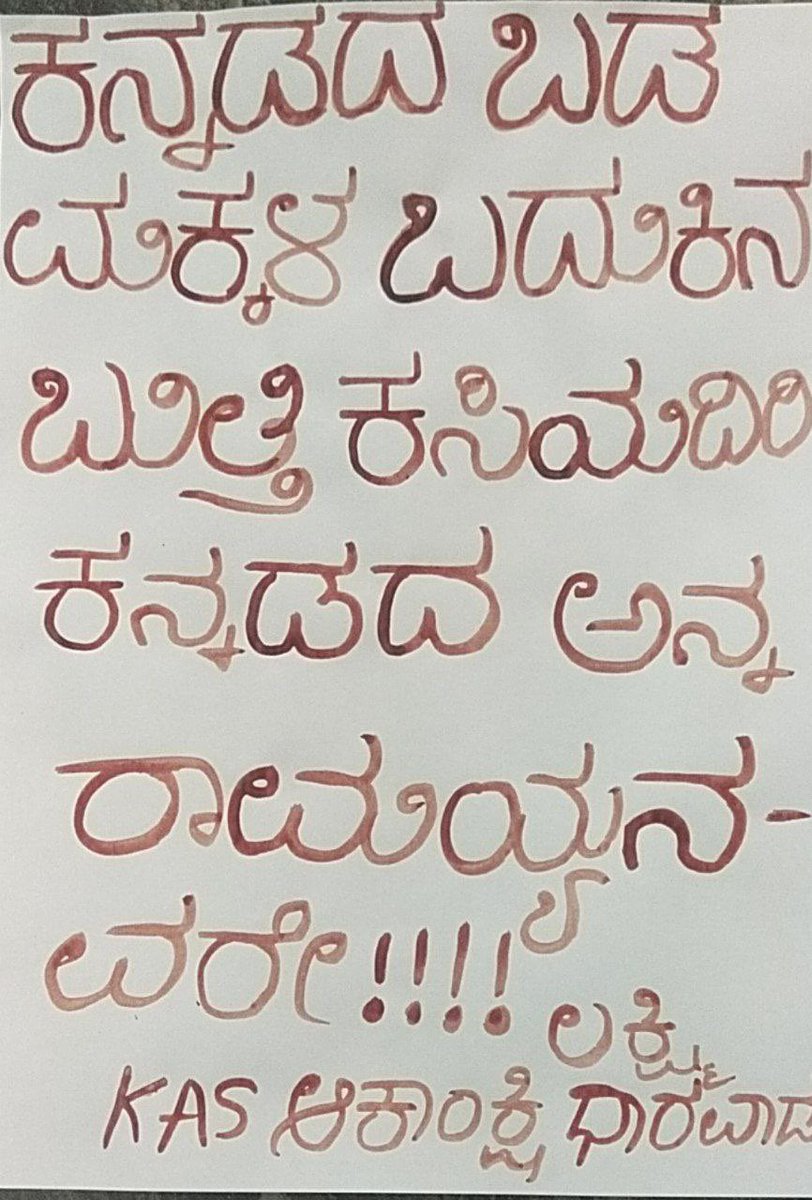 ಕನ್ನಡದ ಬಡ
ಮಕ್ಕಳ ಬದುಕಿನ
ಬುತ್ತಿ ಕಸಿಯದಿರಿ
ಕನ್ನಡದ ಅನ್ನ
ರಾಮಯ್ಯನ-
ವರೇ!!!!
ಲಕ್ಷ್ಮಿ
KAS ಆಕಾಂಕ್ಷಿ ಧಾರವಾಡ